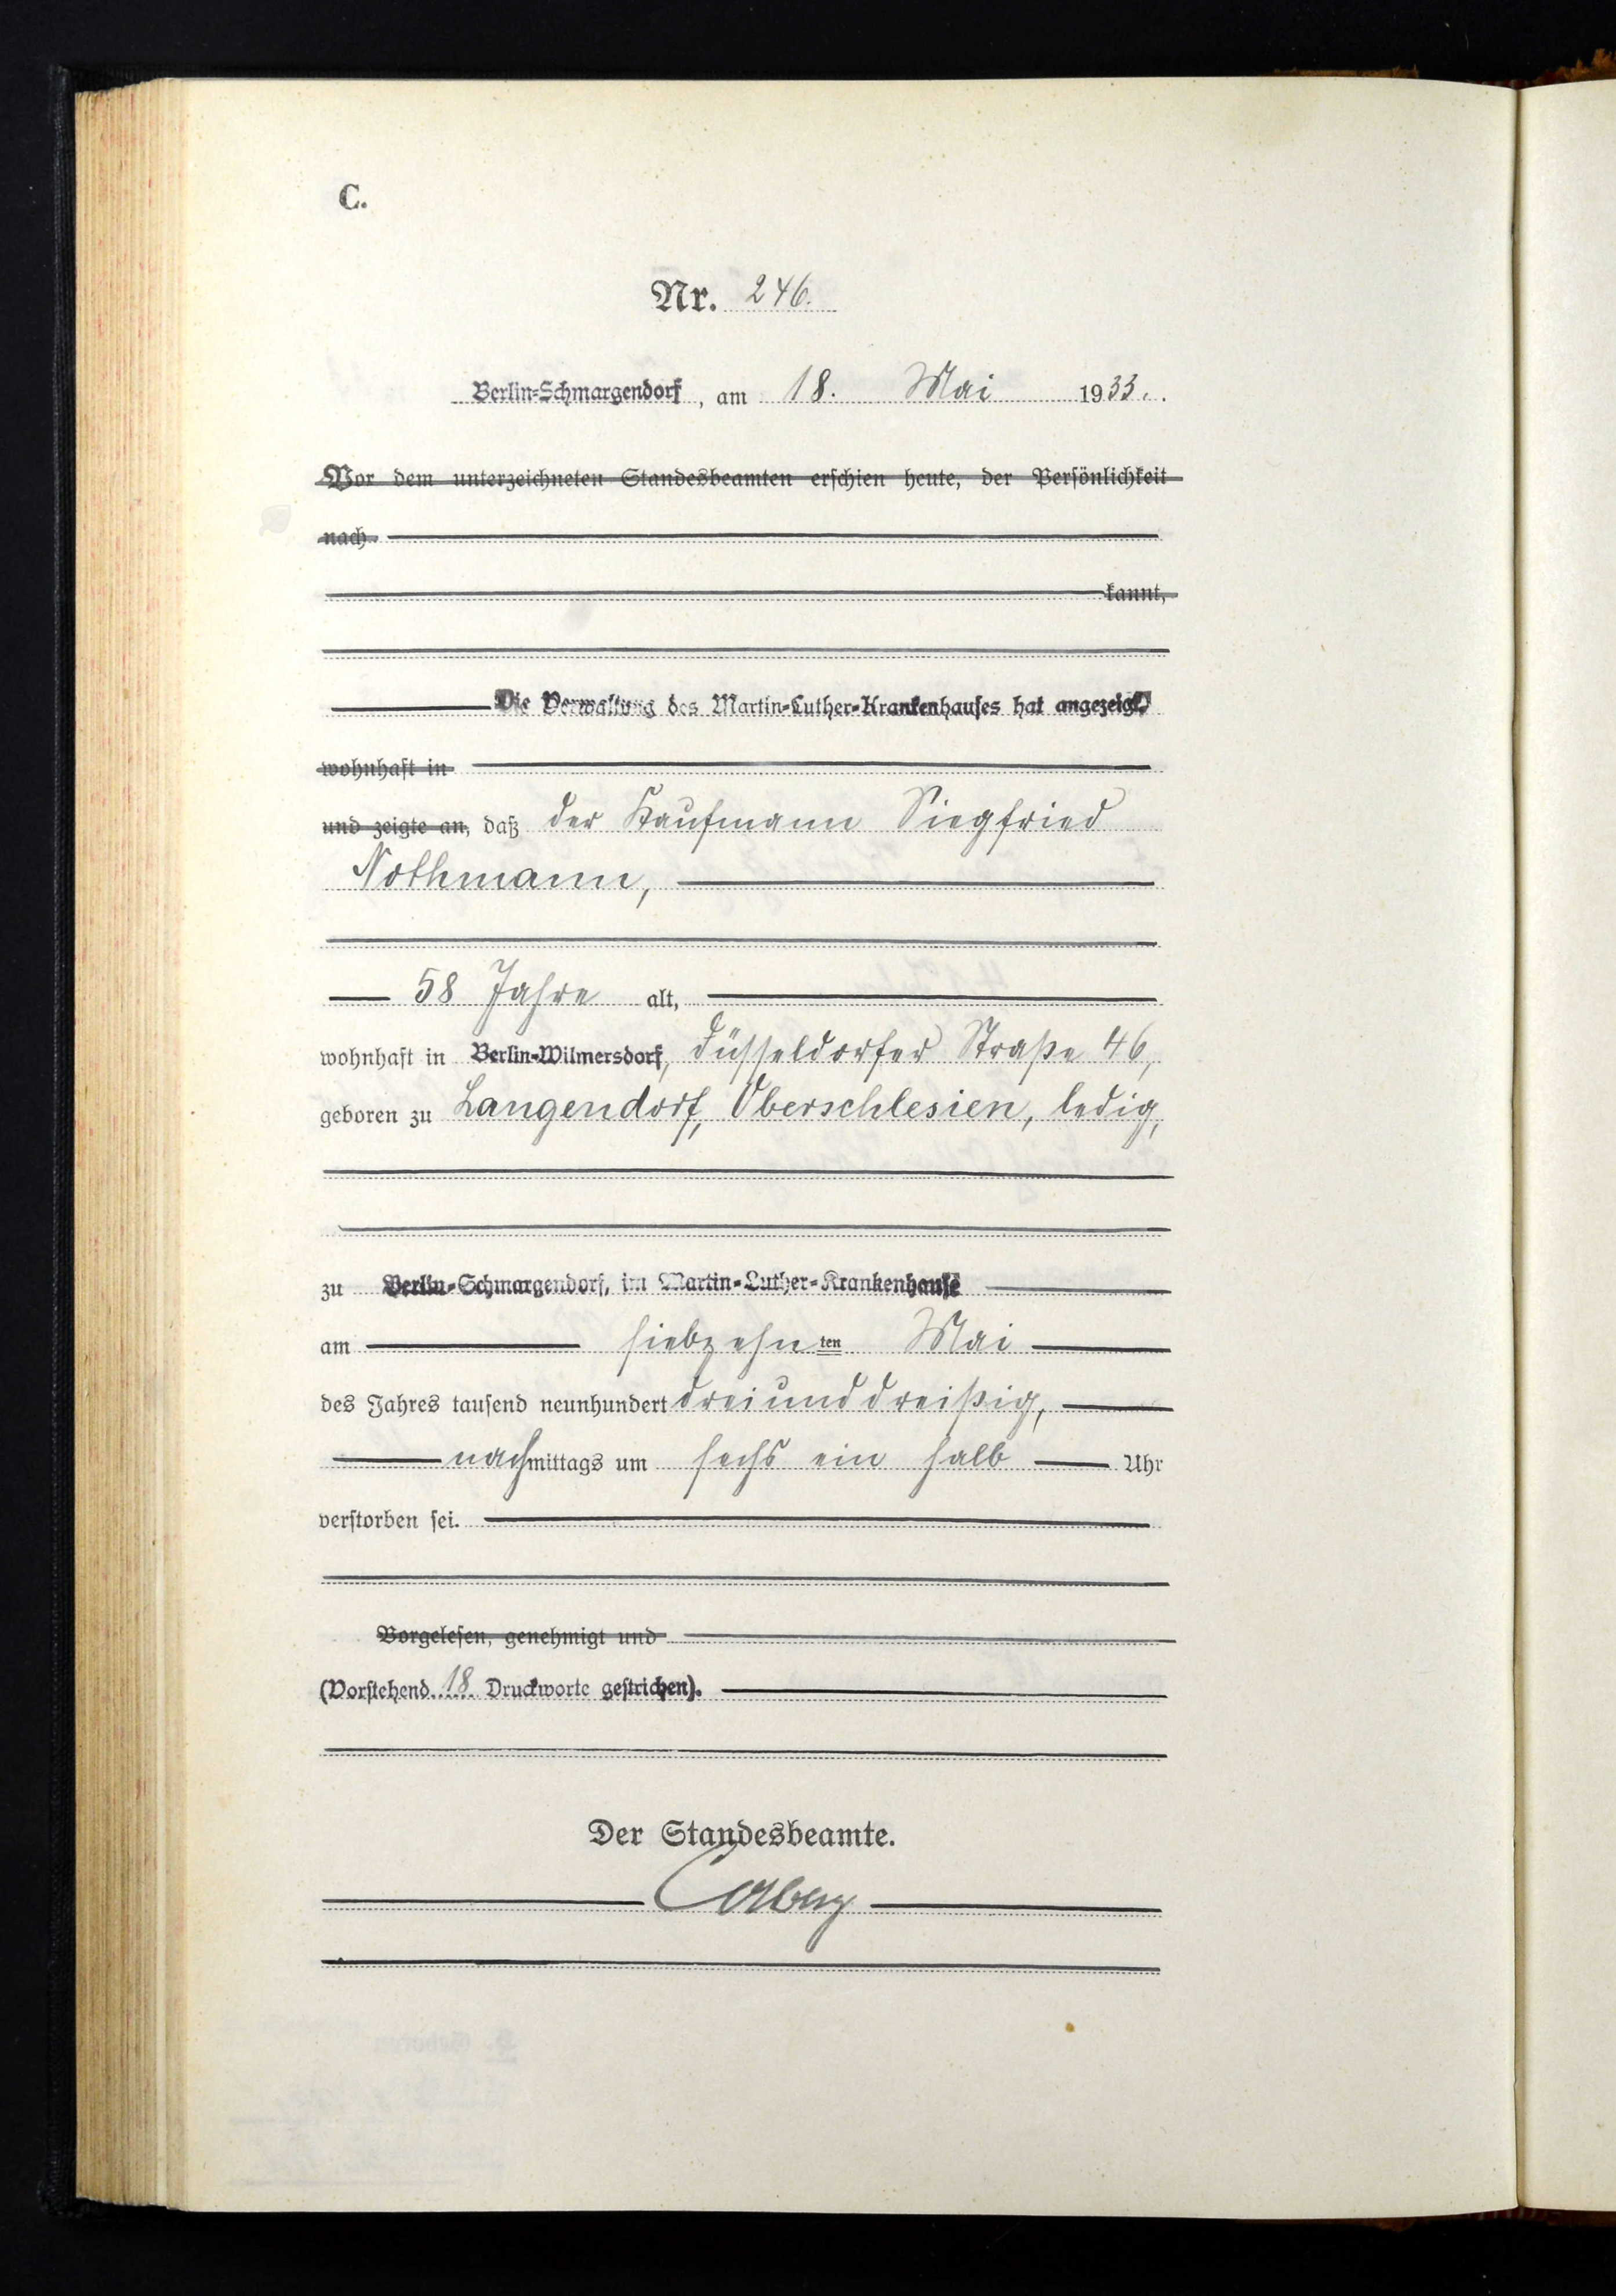 C.
Nr. 246.
Berlin-Schmargendorf, am 18. Mai 1933.
Vor dem unterzeichneten Standesbeamten erschien heute, der Persönlichkeit
nach
kannt,
Die Verwaltung des Martin-Luther-Krankenhauses hat angezeigt,
wohnhaft in
und zeigte an, daß der Kaufmann Siegfried
Nothmann,
58 Jahre alt,
wohnhaft in Berlin-Wilmersdorf, Düsseldorfer Straße 46,
geboren zu Langendorf, Oberschlesien, ledig,
zu Berlin-Schmargendorf, im Martin-Luther-Krankenhause
am siebzehnten Mai
des Jahres tausend neunhundert dreiunddreißig,
nachmittags um sechs ein halb Uhr
verstorben sei.
Vorgelesen, genehmigt und
(Vorstehend 18 Druckworte gestrichen).
Der Standesbeamte.